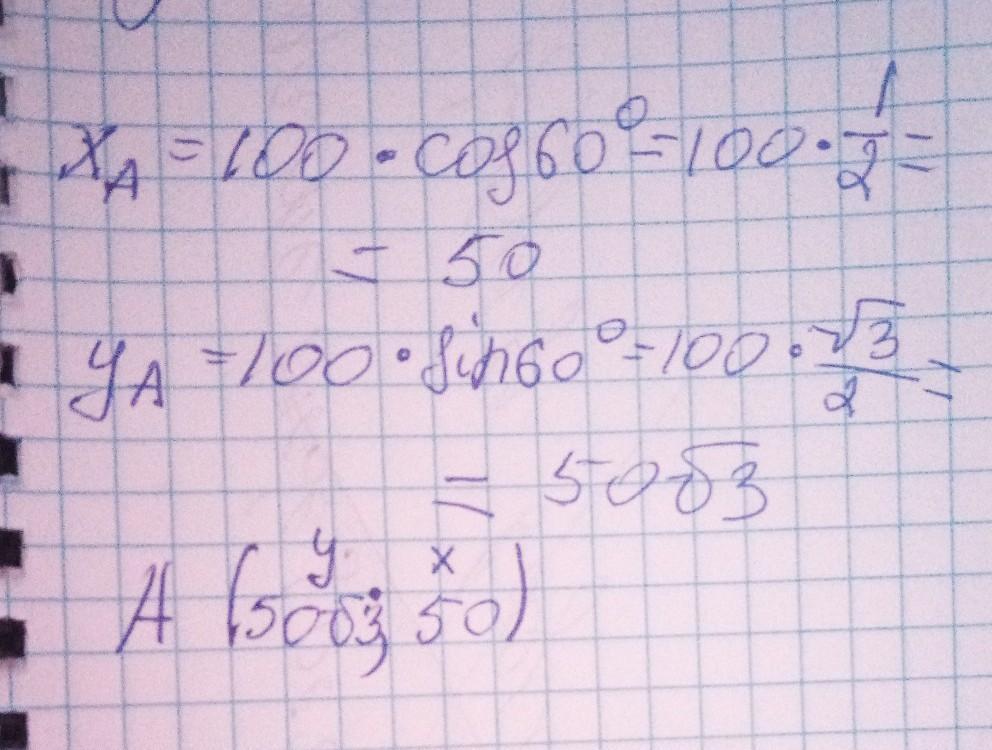 x_A = 100 · cos60° = 100 · 1/2 =
= 50
y_A = 100 · sin60° = 100 · √3/2 =
= 50√3
y x
A (50√3; 50)